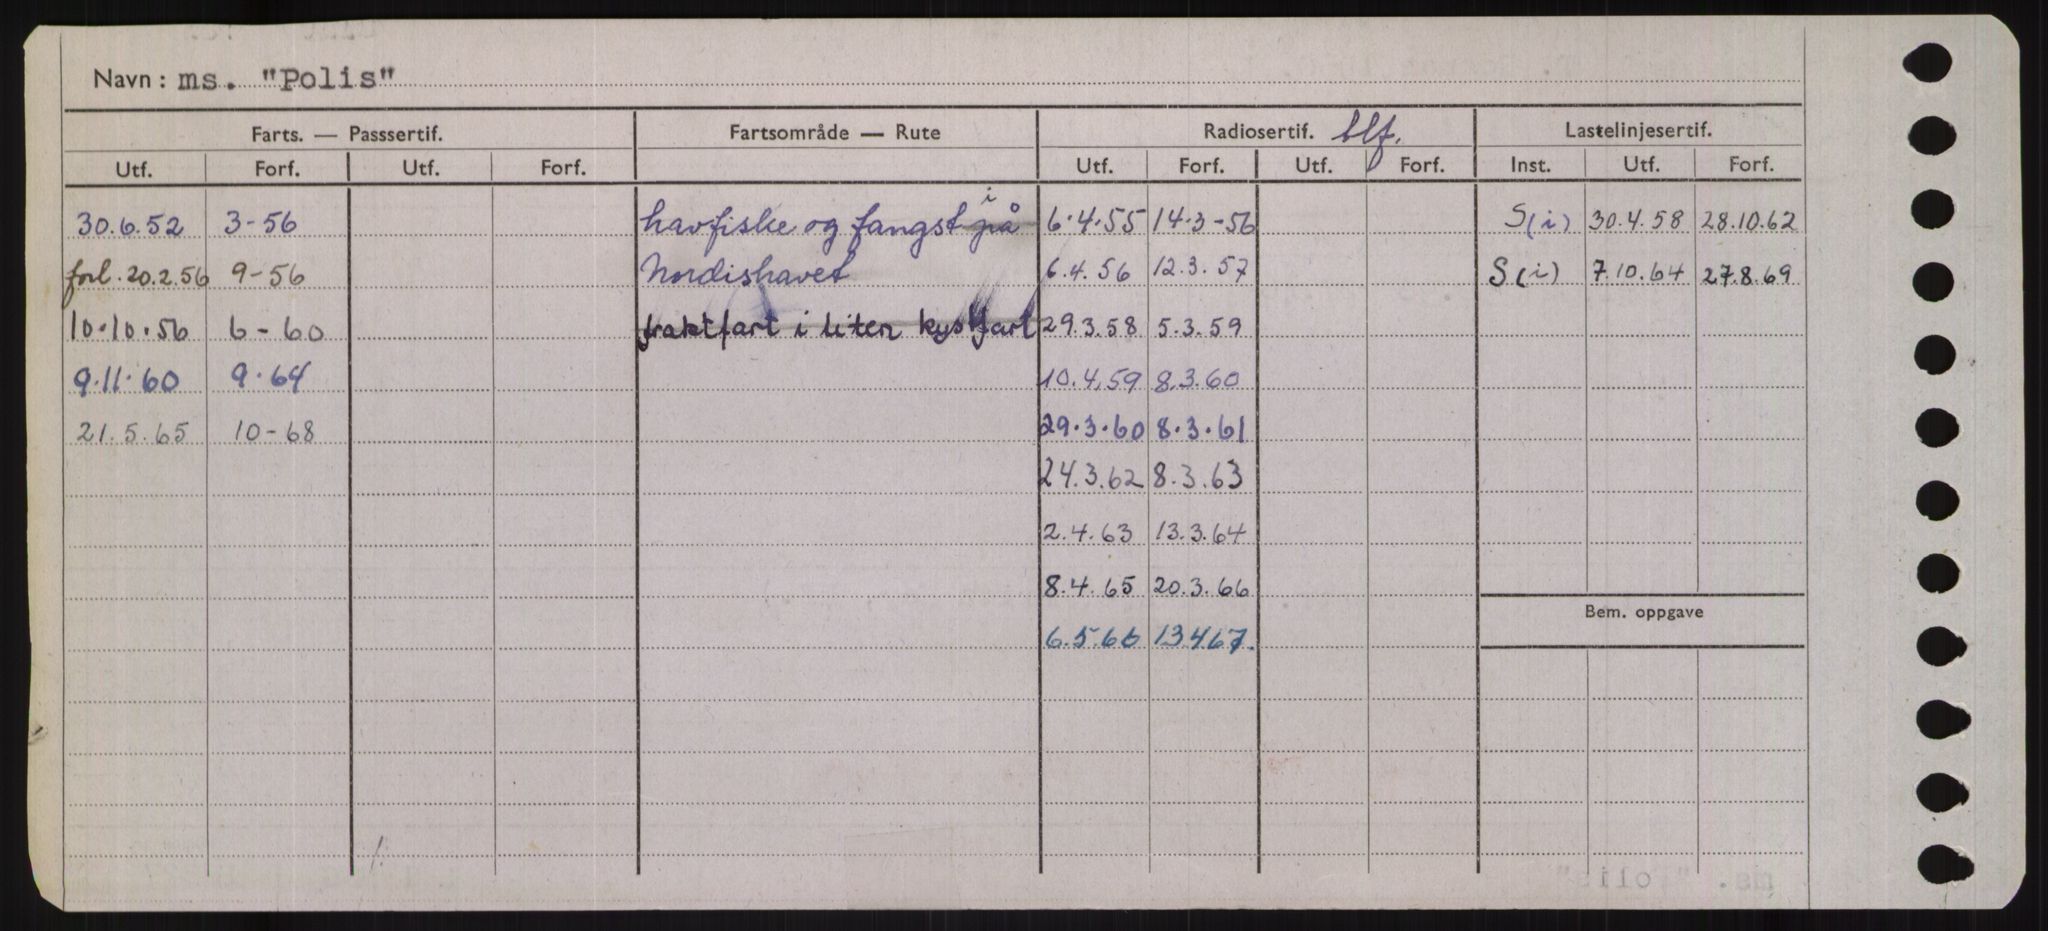 Navn: ms. "Polis"
Farts. — Passsertif. Fartsområde — Rute Radiosertif. blf. Lastelinjesertif.
Utf. Forf. Utf. Forf. Utf. Forf. Utf. Forf. Inst. Utf. Forf.
30.6.52 3-56 havfiske og fangst på i 6.4.55 14.3-56 S(i) 30.4.58 28.10.62
forl. 20.2.56 9-56 Nordishavet 6.4.56 12.3.57 S(i) 7.10.64 27.8.69
10.10.56 6-60 fraktfart i liten kystfart 29.3.58 5.3.59
9.11.60 9.64 10.4.59 8.3.60
21.5.65 10-68 29.3.60 8.3.61
24.3.62 8.3.63
2.4.63 13.3.64
8.4.65 20.3.66
Bem. oppgave
6.5.66 13.4.67.
ms. "Polis"